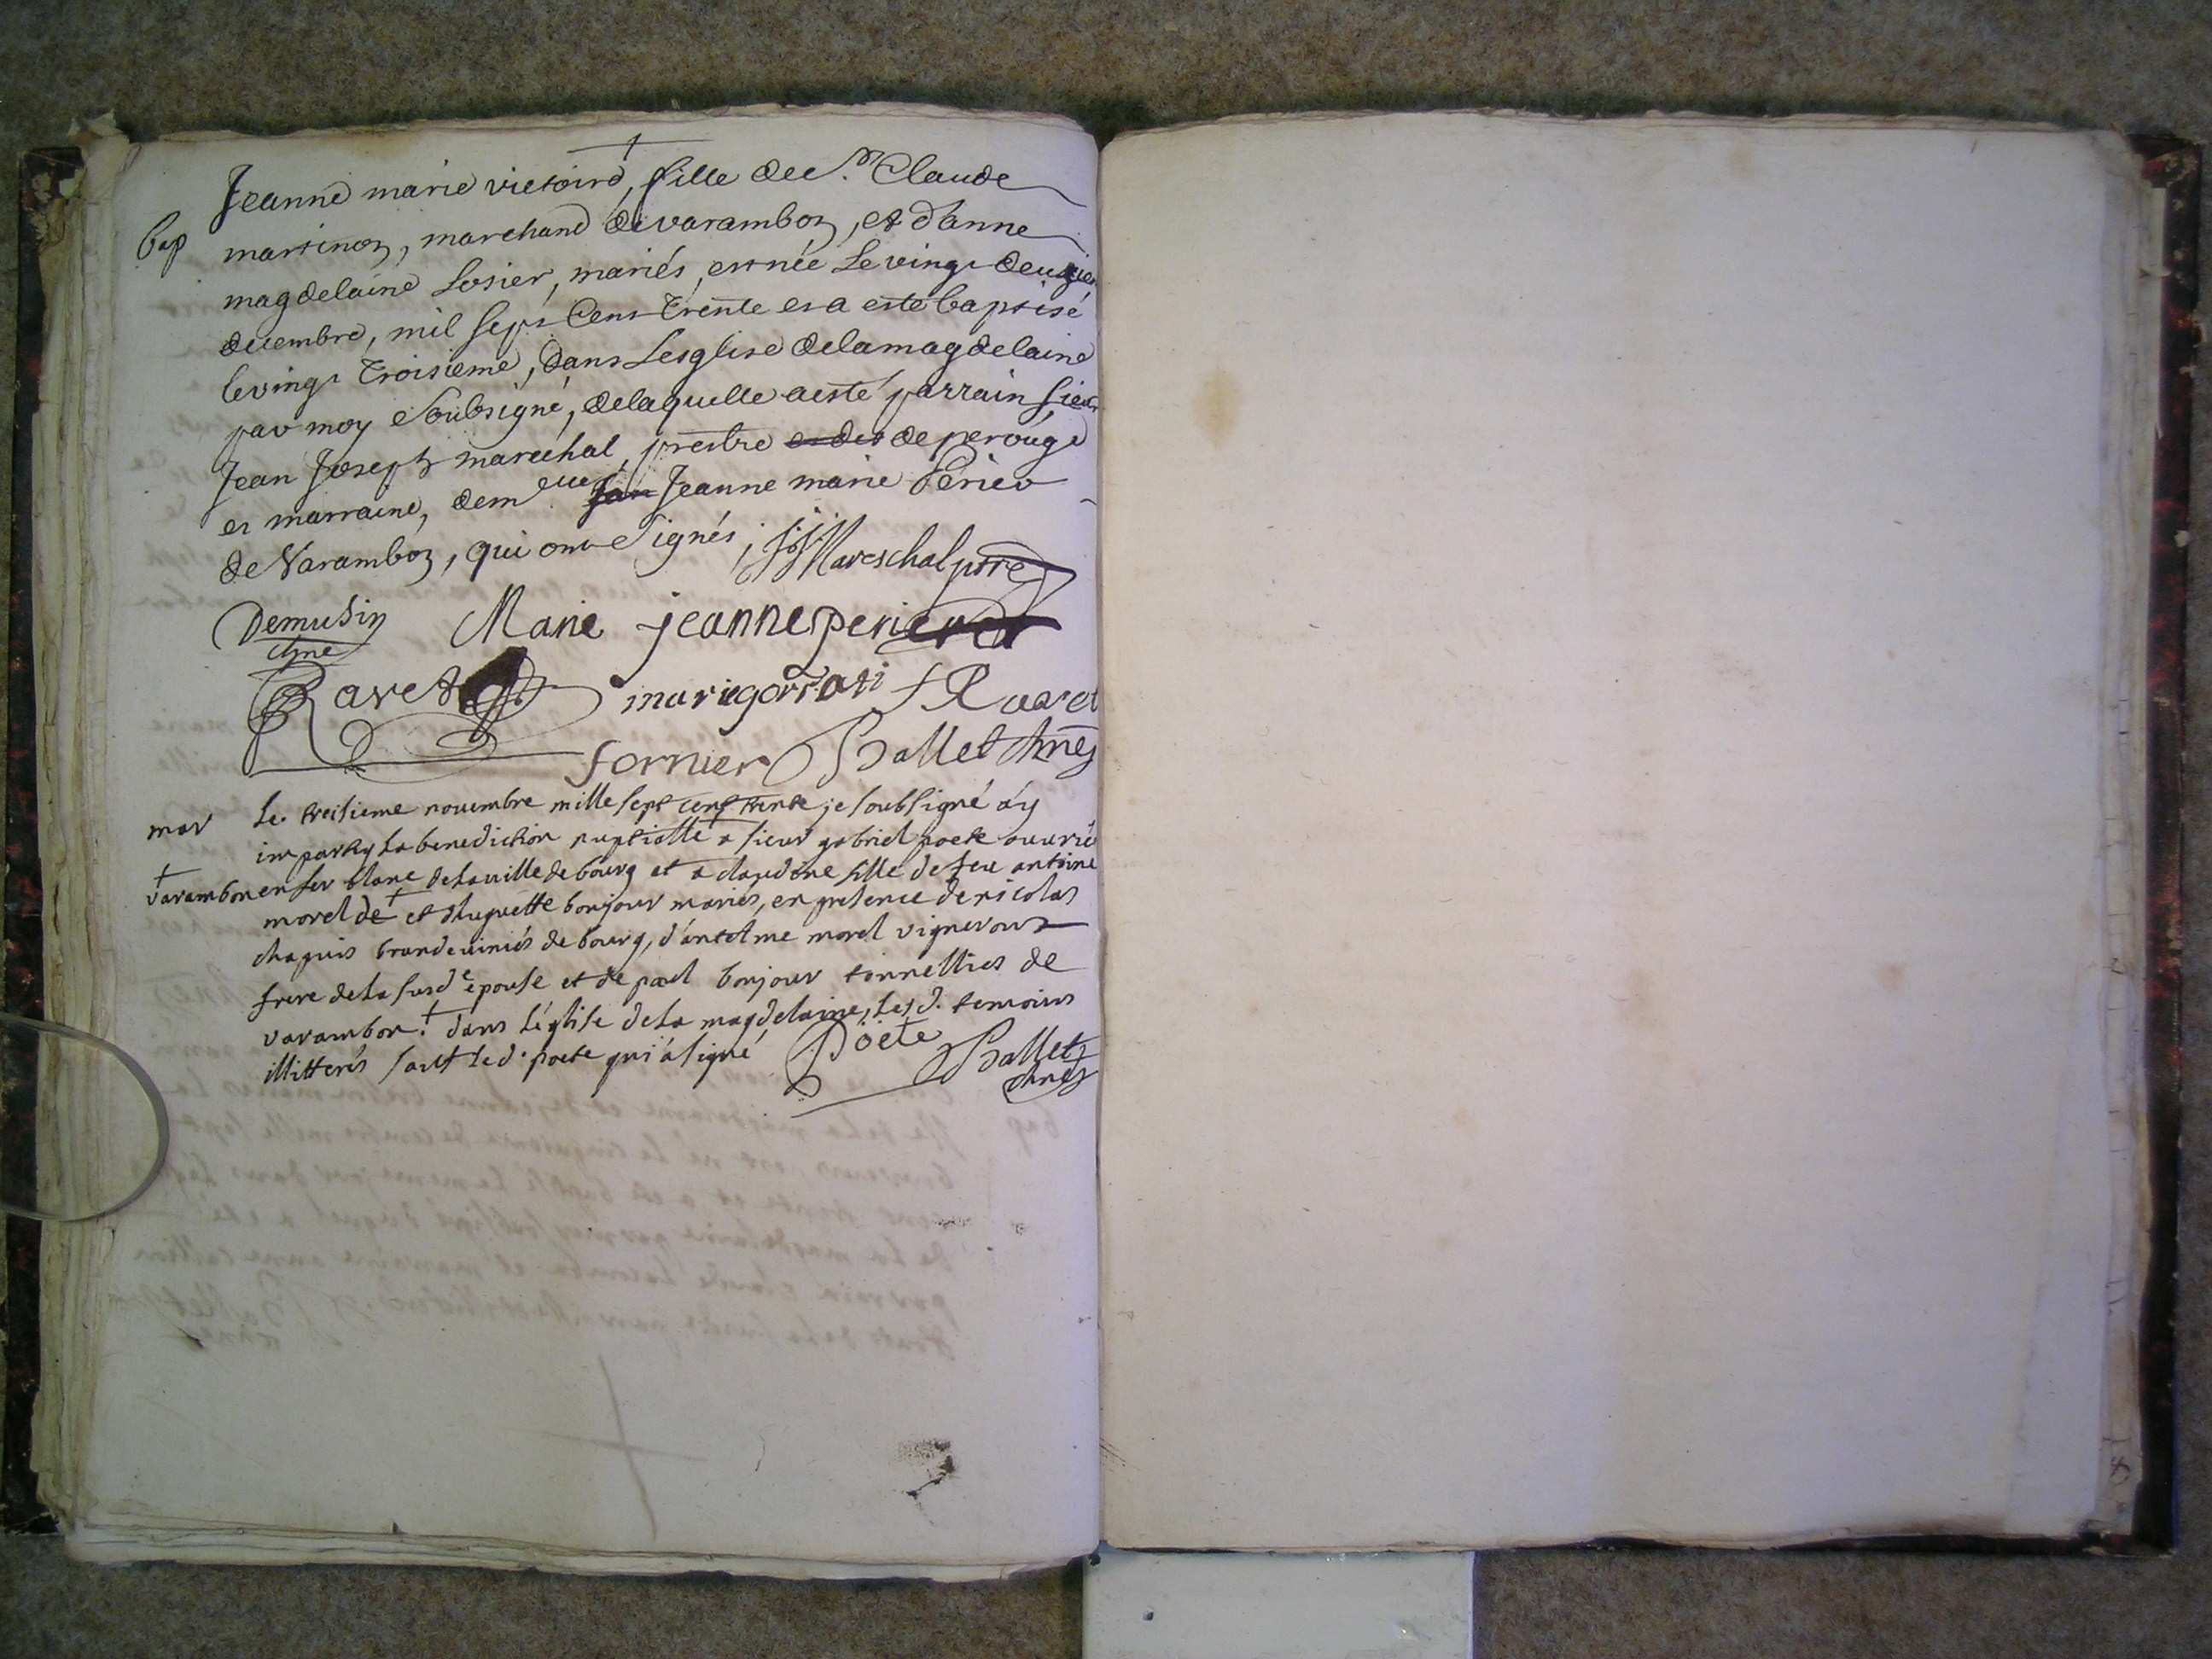 Jeanne marie victoire, fille de s.r Claude
bap martinon, marchand de varambon, et d'anne
magdelaine Losier, mariés, est née Le vingt deuxie
decembre, mil sept Cent Trente et a esté baptisé
le vingt Troisieme, Dans Lesglise de la magdelaine
par moy Soubsigné, de laquelle a esté parrain sieur
Jean Joseph marechal, prestre et des de perouge
et marraine, dem.elle Jan Jeanne marie Perier
de Varambon, qui ont Signés, J J Mareschal ptre
Demusin Marie jeanne perier
chne
Ravet marie gorrati f Ravet
fornier Ballet chne
mar Le treisieme novembre mille sept cent trente je soubsigné ay
imparty la benediction nuptialle a sieur gabriel poete ouvrié
+
varambon en fer blanc de la ville de bourg et a claudine fille de feu antoine
morel de + et d'huguette bonjour mariés, en presence de nicolas
chapuis brandeviniés de bourg, d'antelme morel vigneron
frere de la susd.e epouse et de paul bonjour tonnelliés de
varambon. + dans l'église de la magdelaine, les d. temoins
illitterés sauf le d. poete qui a signé Poëte Ballet
chne